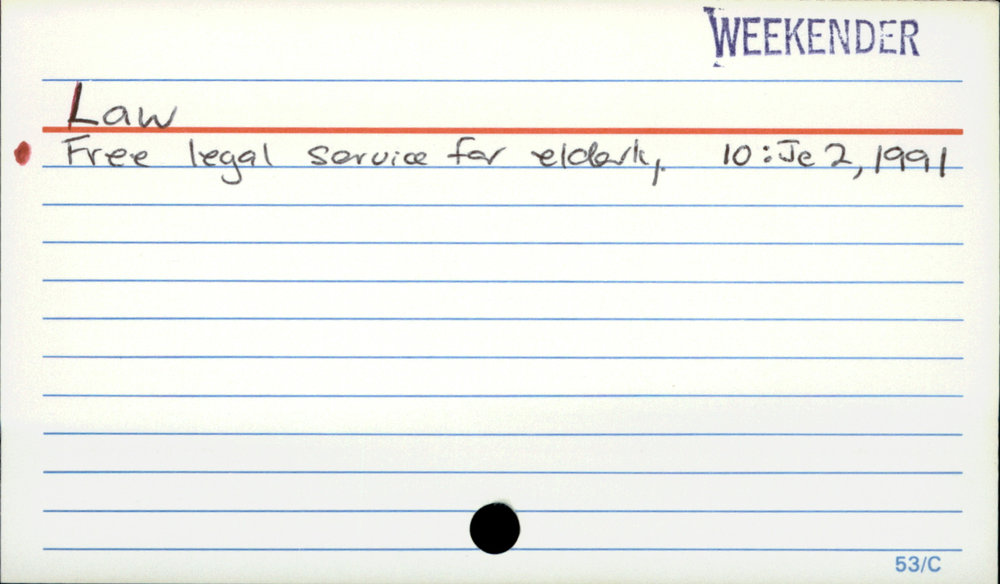 WEEKENDER
Law
Free legal service for elderly, 10:Je 2, 1991
53/C